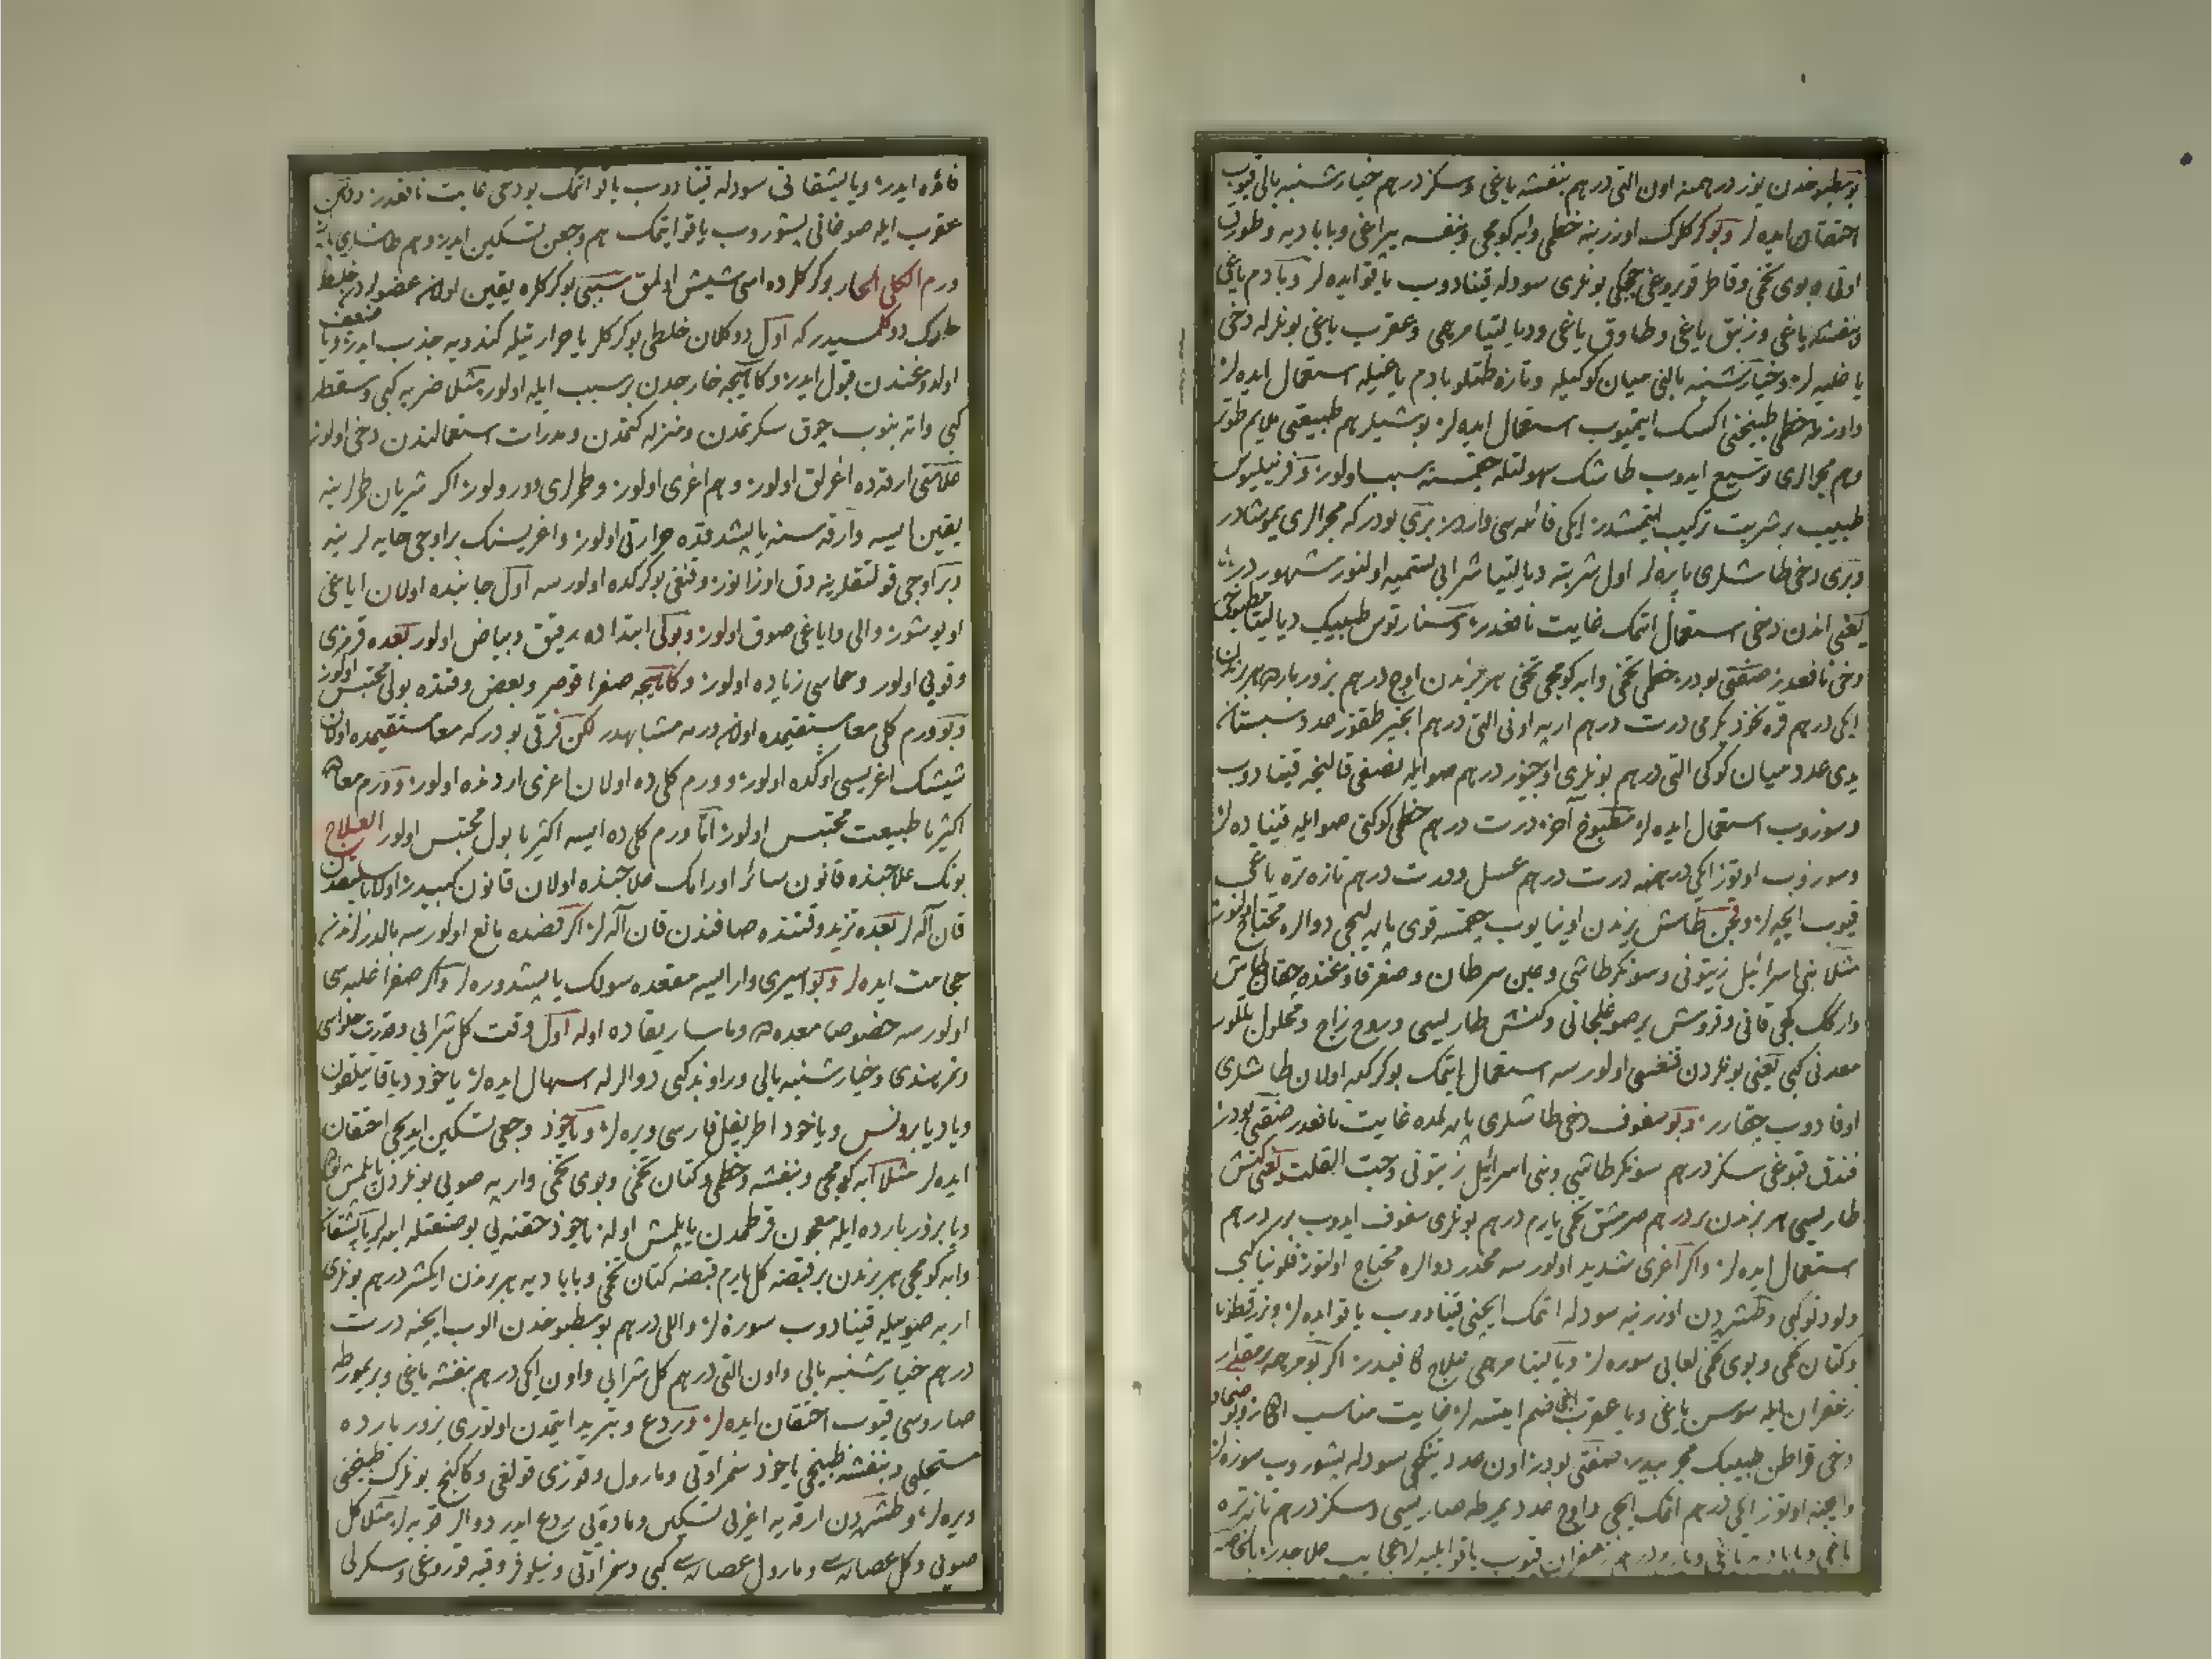 بو مطبوخدن یوز درهمنه اون التی درهم بنفشه یاغی وسکز درهم خیارشنبه بالی قیوب
احتقان ایده لر وبوکرکلرک اوزرینه خطمی وابه کومجی وبنفشه یپراغی وبابادیه وطورق
اوتی وبوی تخمی وقاطر قویروغی چیچکی بونلری سودله قینادوب یاقو ایده لر وبادم یاغی
وبنفشه یاغی وزنبق یاغی وطاوق یاغی ودیالتیا مرهمی وعقرب یاغی بونلرله دخی
یاغلیه لر وخیارشنبه بالنی میان کوکیله وتازه طتلو بادم یاغیله استعمال ایده لر
خطمی طبیخنی اکسک ایتمیوب استعمال ایده لر بو شیلر هم طبیعتی ملایم طوتر
وهم مجرالری توسیع ایدوب طاشک سهولتله چقمسنه سبب اولور وفرنیلیوس
طبیب بر شربت ترکیب ایتمشدر ایکی فائده سی واردر بری بودر که مجرالری یموشادر
وبری دخی طاشلری پاره لر اول شربته دیالتیا شرابی تسمیه اولنور مشهور در
یعنی اندن دخی استعمال اتمک غایت نافعدر طبیبک دیالتیا مطبوخی
دخی نافعدر صنعتی بودر خطمی تخمی وابه کومجی تخمی هر برندن اوچ درهم بزور بارده هر برندن
ایکی درهم قره نخود یکرمی درت درهم اربه اونی التی درهم انجیر طقوز عدد سبستان
یدی عدد میان کوکی التی درهم بونلری اوچیوز درهم صو ایله نصفی قالنجه قینادوب
وسوزوب استعمال ایده لر مطبوخ آخر درت درهم خطمی کوکنی صو ایله قیناده لر
وسوزوب اوتوز ایکی درهمنه درت درهم عسل ودرت درهم تازه تره یاغی
قیوب ایچیره لر وقچن طاش یرندن اوینایوب چقمسه قوی پاره لیجی دوالره محتاج اولنور
مثلا بنی اسرائیل زیتونی وسونکر طاشی وعین سرطان وصغر قاوغنده چقان طاش
کچی قانی وقرومش یر صوغلجانی وکنش طاریسی وروح زاج ومحلول بللور
معدنی کبی یعنی بونلردن قنغیسی اولورسه استعمال ایتمک بوکرکده اولان طاشلری
اوفادوب چقارر وبو سفوف دخی طاشلری پاره لمده غایت نافعدر صنعتی بودر
فندق قبوغی سکز درهم سونکر طاشی وبنی اسرائیل زیتونی وحب القلت یعنی کنش
طاریسی هر برندن بر درهم صرمشق تخمی یارم درهم بونلری سفوف ایدوب برر درهم
استعمال ایده لر واکر آغری شدید اولورسه مخدر دوالره محتاج اولنور فلونیا کبی
ولودنو کبی وطشردن اوزرینه سودله اتمک ایچنی قینادوب یاقو ایده لر وبزرقطونا
وکتان تخمی وبوی تخمی لعابی سوره لر ودیالتیا مرهمی علاج کافیدر اکر بو مرهمه بر مقدار
زعفران ایله سوسن یاغی ویا عقرب یاغی ضم ایتسه لر غایت مناسب اولور وبو ضماد
دخی قراطن طبیبک مجربیدر صنعتی بودر اون عدد سودله پشوروب سوزه لر
وایچنه اوتوز ایکی درهم اتمک ایچی واوچ عدد یمرطه صاریسی وسکز درهم تازه تره
یاغی وبابادیه یاغی زعفران قیوب یاقو ایلیه لر عجایب علاجدر
فائده ایدر ویا یشقانی سودله قینادوب یاقو اتمک بودخی غایت نافعدر
عقرب ایله صوغانی پشوروب یاقو ایتمک هم وجعن تسکین ایدر وهم طاشلری
ورم الکلی الحار بوکرکلرده اسی شیش اولمق سببی بوکرکلره یقین اولان عضولردن خلط
دوکلمسیدر که اول دوکلان خلطی بوکرکلر یا حرارتیله کندویه جذب ایدر ویا ضعف
اولدوغندن قبول ایدر وکاهیجه خارجدن بر سبب ایله اولور مثلا ضربه کبی وسقطه
کبی واته بنوب چوق سکرتمدن ومنزله کتمدن ومدرات استعمالندن دخی اولور
علامتی ارقه ده اغرلق اولور وهم اغری اولور وطمرلری دورولور اکر شریان طمرلرینه
یقین ایسه وارقه سنه یاپشدقده حرارتی اولور واغریسنک بر اوجی خایه لرینه
وبر اوجی قولتقلرینه دق اوزانور وقنغی بوکرکده اولورسه اول جانبده اولان ایاغی
اویوشور والی وایاغی صوق اولور وبولی ابتداده رقیق وبیاض اولور بعده قرمزی
وقویی اولور وحماسی زیاده اولور وکاهیجه صفرا قوصر وبعض وقتده بولی محتبس اولور
وبو ورم کلی معا مستقیمده اولان ورمه مشابهدر لکن فرقی بودر که معا مستقیمده اولان
شیشک اغریسی اوکده اولور وورم کلی ده اولان اغری اردنده اولور وورم معاده
اکثریا طبیعت محتبس اولور اما ورم کلی ده ایسه اکثریا بول محتبس اولور العلاج
بونک علاجنده قانون سائر اورامک علاجنده اولان قانون کبیدر اولا باسلیقدن
قان آله لر بعده تزید وقتنده صافندن قان آله لر اکر فصده مانع اولورسه بالدرلرندن
حجامت ایده لر وبواسیری وار ایسه مقعده سولک یاپشدوره لر واکر صفرا غلبه سی
اولورسه خصوصا معده ده وماساریقاده اوله اول وقت کل شرابی وقدرت حلواسی
وتمر هندی وخیارشنبه بالی وراوند کبی دوالرله اسهال ایده لر یاخود دیاقاتیلقون
ویا دیابرونس ویاخود اطریفل فارسی ویره لر ویاخود وجعی تسکین ایدیجی احتقان
ایده لر مثلا ابه کومجی وبنفشه وخطمی وکتان تخمی وبوی تخمی واربه صویی بونلردن یاپلمش اوله
ویا بزور بارده ایله معجون قرطمدن یاپلمش اوله یاخود حقنه یی بو صنعتله ایده لر
وابه کومجی هر برندن بر قبضه کل یارم قبضه کتان تخمی وبابادیه هر برندن ایکیشر درهم بونلری
اربه صوییله قینادوب سوزه لر واللی درهم بو مطبوخدن الوب ایچنه درت
درهم خیارشنبه بالی واون التی درهم کل شرابی واون ایکی درهم بنفشه یاغی وبر یمورطه
صاروسی قیوب احتقان ایده لر وردع وتبرید ایتمدن اوتوری بزور بارده
مستحلبی وبنفشه طبیخی یاخود سمز اوتی ومارول وقوزی قولغی وکاکنج بونلرک طبیخنی
ویره لر وطشردن ارقه یه اغریی تسکین ومادۀیی ردع ایدر دوالر قویه لر مثلا کل
صویی وکل عصاره سی ومارول عصاره سی کبی وسمز اوتی ونیلوفر وقبه قوروغی وسکرلی